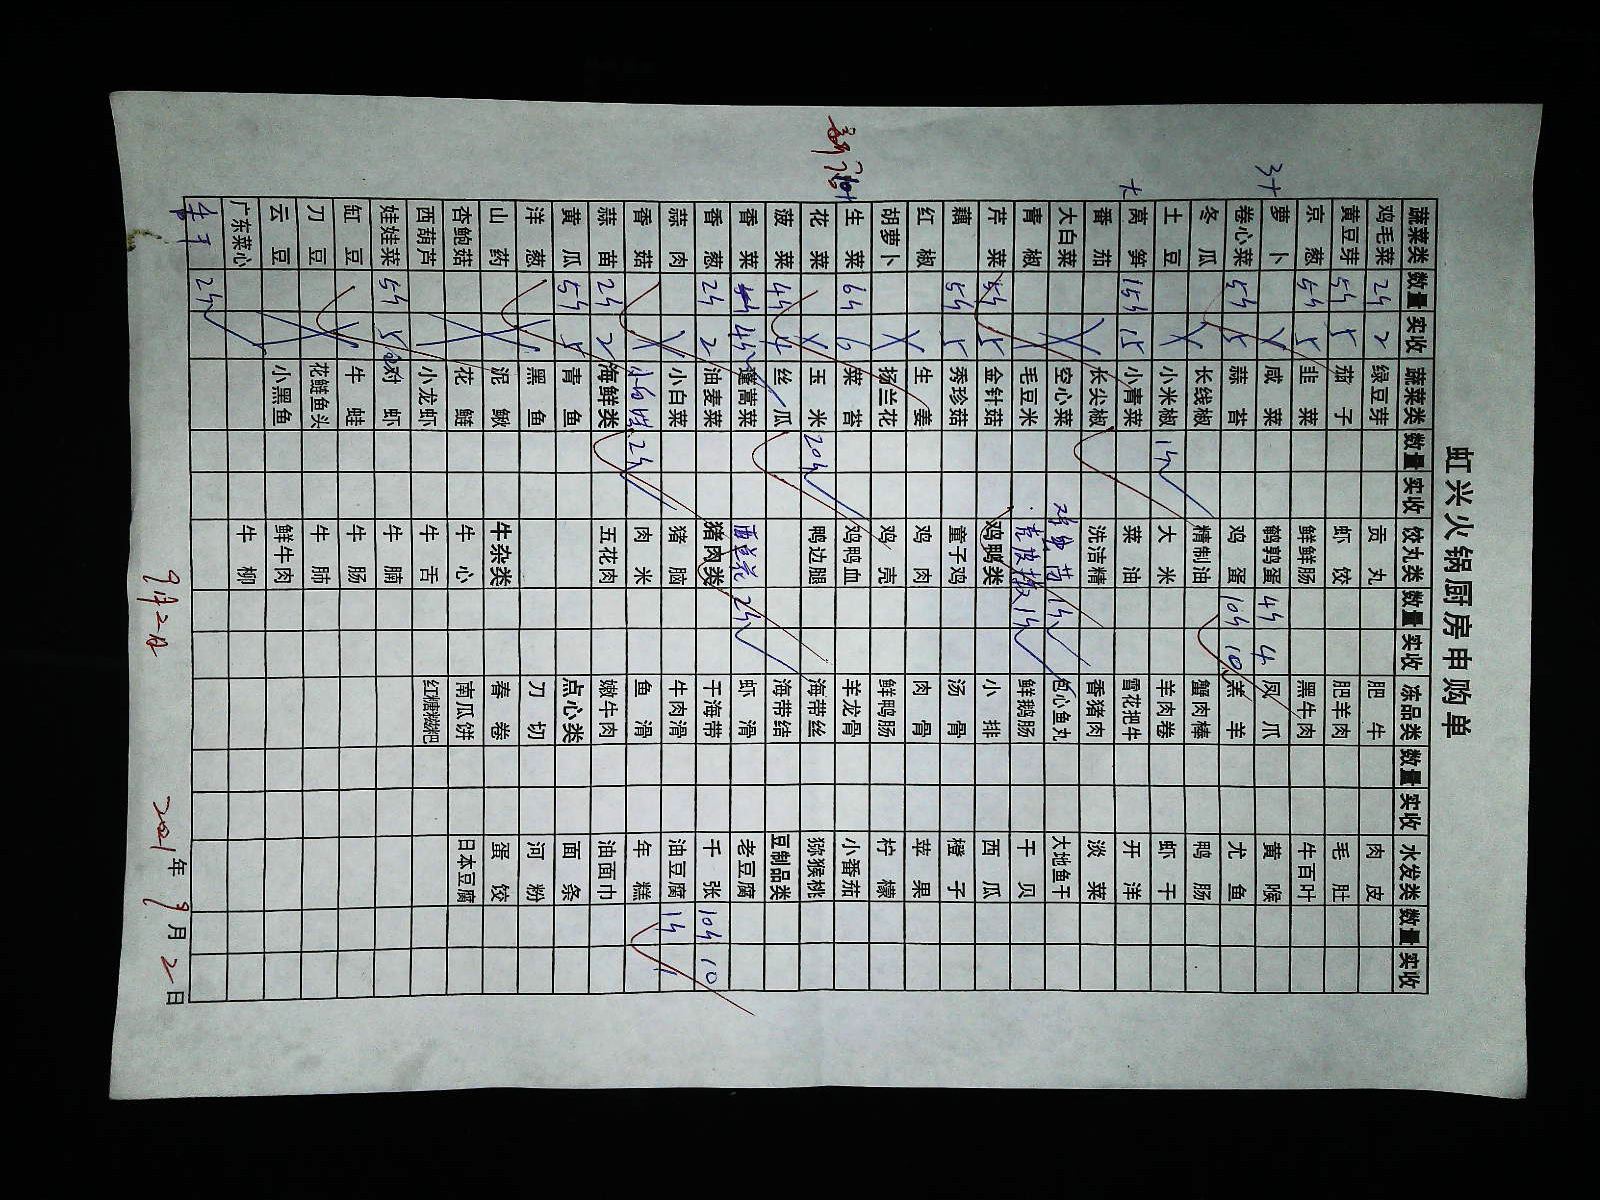 虹兴火锅厨房申购单
蔬菜类 数量 实收 蔬菜类 数量 实收 饺丸类 数量 实收 冻品类 数量 实收 水发类 数量 实收
鸡毛菜 2斤 2 绿豆芽 贡丸 肥牛 肉皮
黄豆芽 5斤 5 茄子 虾饺 肥羊肉 毛肚
京葱 5斤 5 韭菜 鲜鲜肠 黑牛肉 牛百叶
萝卜 咸菜 鹌鹑蛋 4斤 4 凤爪 黄喉
卷心菜 5斤 5 蒜苔 鸡蛋 10斤 10 羔羊 尤鱼
冬瓜 长线椒 精制油 蟹肉棒 鸭肠
土豆 小米椒 1斤 大米 羊肉卷 虾干
大 莴笋 15斤 15 小青菜 菜油 雪花把牛 开洋
番茄 长尖椒 洗洁精 香猪肉 淡菜
大白菜 空心菜 1斤 包心鱼丸 大地鱼干
青椒 毛豆米 青皮椒 1斤 鲜鹅肠 干贝
芹菜 5斤 5 金针菇 鸡鸭类 小排 西瓜
藕 5斤 5 秀珍菇 童子鸡 汤骨 橙子
红椒 生姜 鸡肉 肉骨 苹果
胡萝卜 扬兰花 鸡壳 鲜鸭肠 柠檬
生菜 6斤 6 菜苔 鸡鸭血 羊龙骨 小番茄
花菜 玉米 20斤 鸭边腿 海带丝 猕猴桃
菠菜 4斤 4 丝瓜 海带结 豆制品类
香菜 4斤 蓬蒿菜 西兰花 2斤 虾滑 老豆腐
香葱 2斤 2 油麦菜 猪肉类 干海带 千张 10斤 10
蒜肉 小白菜 猪脑 牛肉滑 油豆腐 1斤 1
香菇 2斤 肉米 鱼滑 年糕
蒜苗 2斤 2 海鲜类 五花肉 嫩牛肉 油面巾
黄瓜 5斤 5 青鱼 点心类 面条
洋葱 黑鱼 刀切 河粉
山药 泥鳅 牛杂类 春卷 蛋饺
杏鲍菇 花鲢 牛心 南瓜饼 日本豆腐
西葫芦 小龙虾 牛舌 红糖糍粑
娃娃菜 5斤 5 对虾 牛腩
缸豆 牛蛙 牛肠
刀豆 花鲢鱼头 牛肺
云豆 小黑鱼 鲜牛肉
广东菜心 牛柳
2斤
9月2日 2021年9月2日